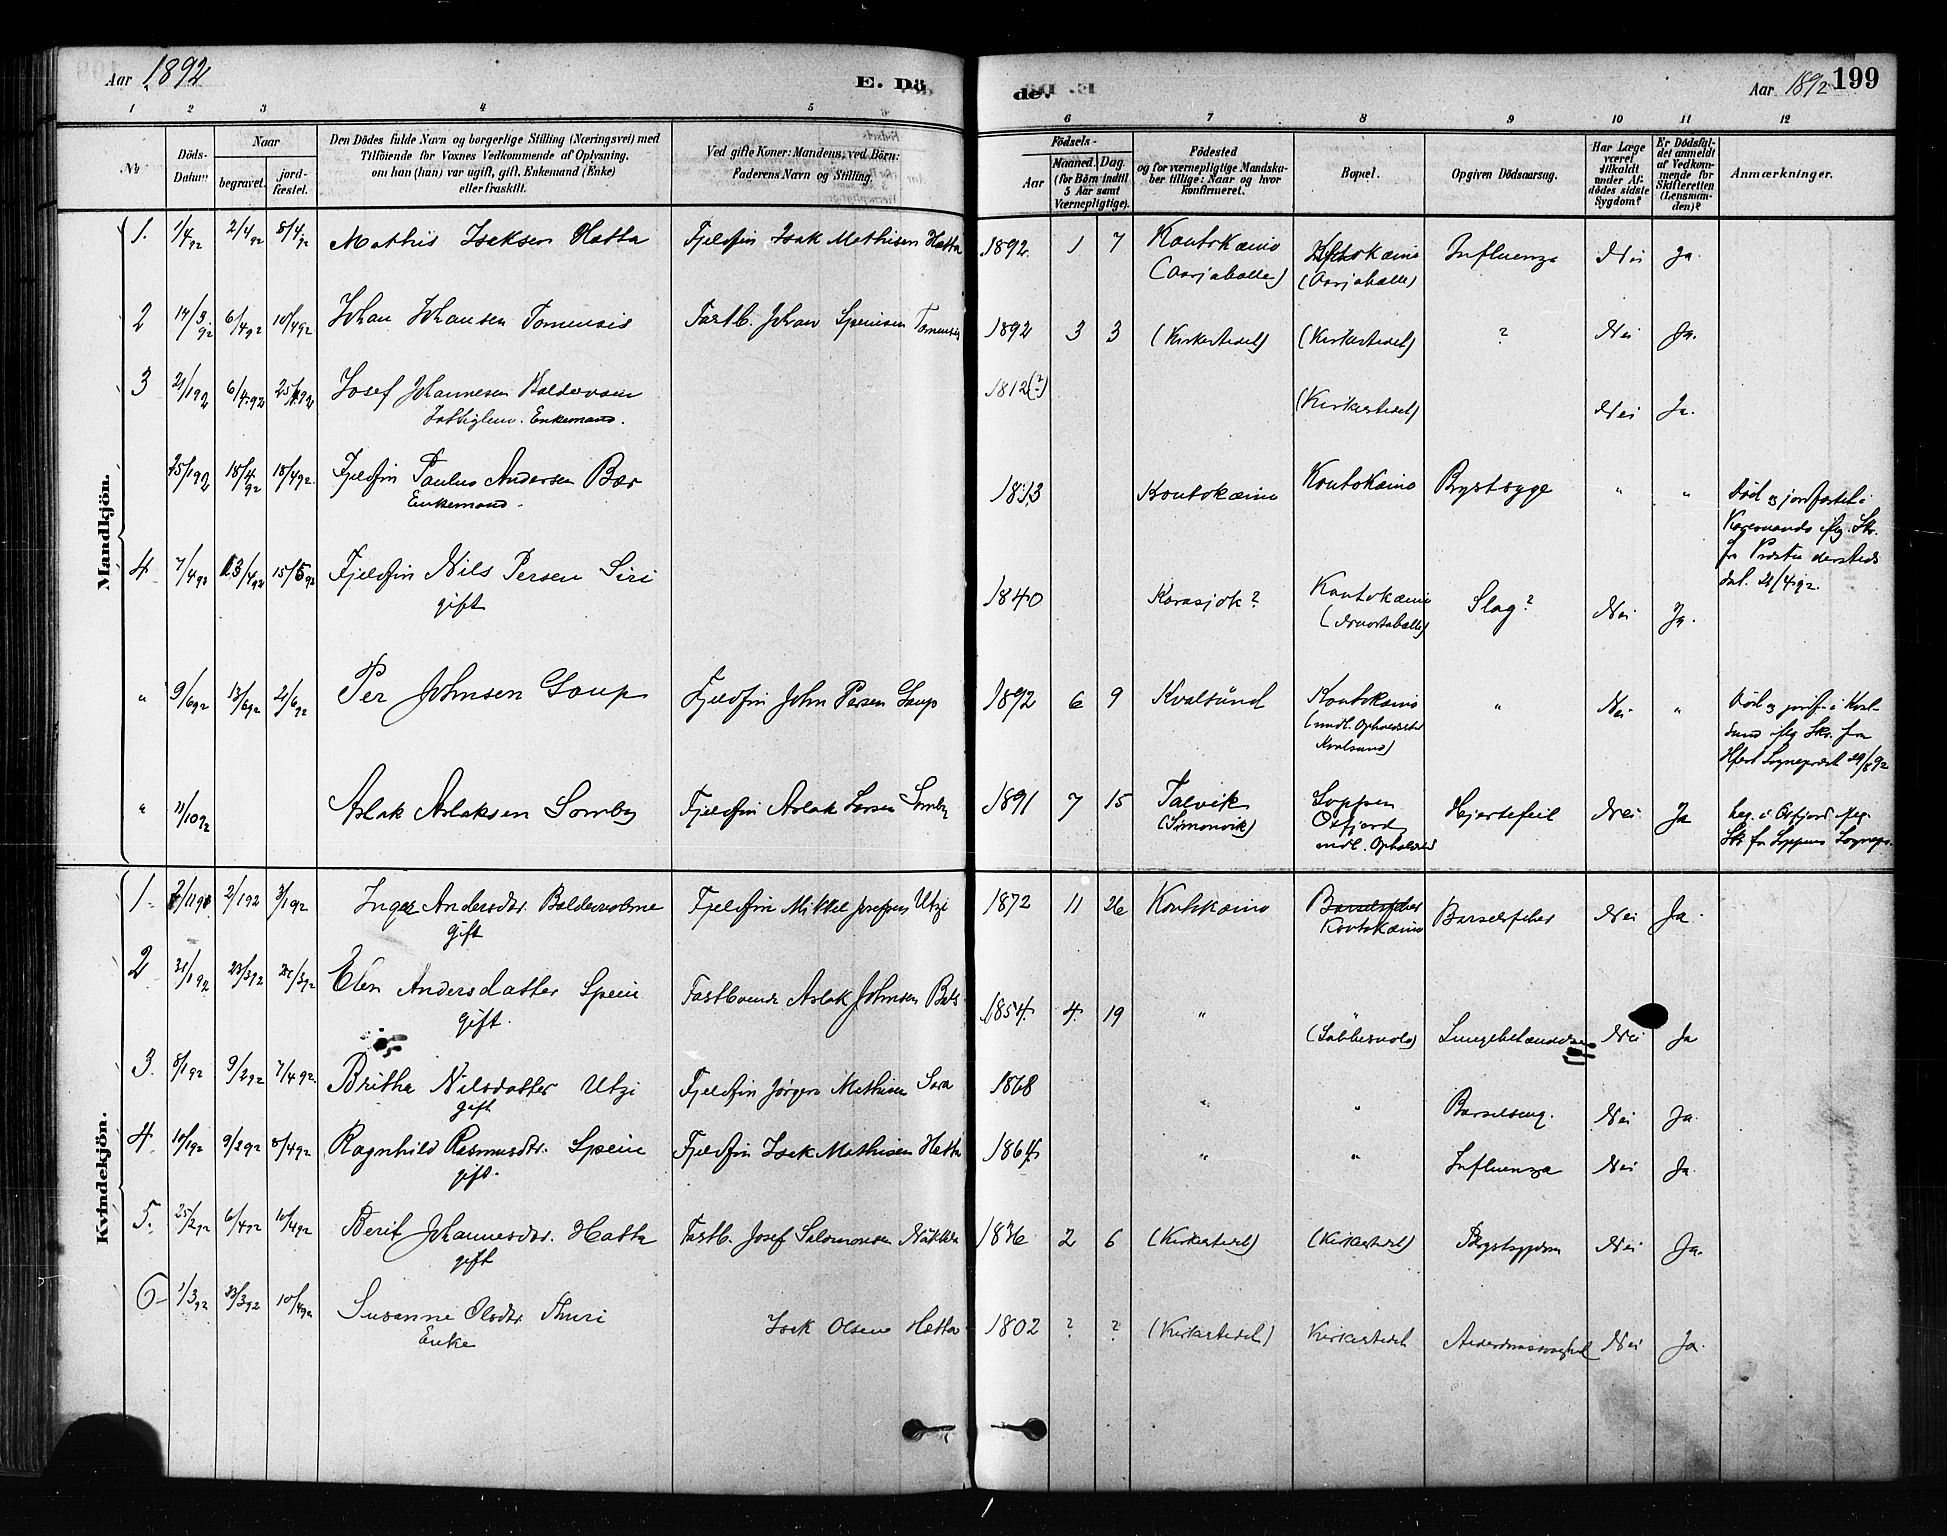 Aar 1892
E. Dö
de.
Aar 1892
199
1 2 3 4 5 6 7 8 9 10 11 12
No
Döds-
Datum
Naar
begravet.
jord-
fæstet.
Den Dödes fulde Navn og borgerlige Stilling (Næringsvei) med
Tilföiende for Voxnes Vedkommende af Oplysning,
om han (hun) var ugift, gift, Enkemand (Enke)
eller fraskilt.
Ved gifte Koner: Mandens, ved Börn:
Faderens Navn og Stilling.
Födsels-
Aar
Maaned.
Dag.
(for Börn indtil
5 Aar samt
Værnepligtige).
Födested
og for værnepligtige Mandska-
ber tillige: Naar og hvor
konfirmeret.
Bopæl.
Opgiven Dödsaarsag.
Har Læge
været
tilkaldt
under Af-
dödes sidste
Sygdom?
Er Dödsfal-
det anmeldt
af Vedkom-
mende for
Skifteretten
(Lensman-
den)?
Anmærkninger.
Mandkjön.
1. 1/4 92 2/4 92 8/4 92 Mathis Isaksen Hætta Fjeldfin Isak Mathisen Hætta 1892 1 7 Koutokæino Koutokæino Influenza Nei Ja.
(Aarjaballe) (Aarjaballe)
2 14/3 92 6/4 92 10/4 92 Johan Johansen Tomensis Fastb. Johan Tomensis 1892 3 3 (Kirkestedet) (Kirkestedet) ? Nei Ja.
3 21/1 92 6/4 92 Josef Johannesen 1812(?) (Kirkestedet) Nei Ja.
Enkemand.
25/1 92 18/4 92 18/4 92 Fjeldfin Paulus Andersen Bær 1813 Koutokæino Koutokæino Brystsyge " " Död og jordfæstet i
Enkemand.
Karesuando iflg. Skr.
fra Præsten dersteds
dat. 21/4 92.
4 7/4 92 13/4 92 15/5 92 Fjeldfin Nils Persen Siri 1840 Karasjok? Koutokæino Slag? Nei Ja.
gift
" 9/6 92 13/6 92 21/6 92 Per Johnsen Gaup Fjeldfin John Persen Gaup 1892 6 9 Kvalsund Koutokæino " Nei " Död og jordf. i Kval-
(mdl. Opholdssted
Kvalsund)
sund iflg Skr. fra
Hfest Sognepræst
" 11/10 92 Aslak Aslaksen Somby Fjeldfin Aslak Larsen Somby 1891 7 15 Talvik Loppen Hjertefeil Nei Ja beg. i Öxfjord iflg.
(Simonvik) Öxfjord
mdl. Opholdssted
Skr fra Loppens Sognepr.
Kvindekjön.
1. 2/1 92 3/1 92 Inger Andersdtr. Fjeldfin Mikkel Josefsen Utzi 1872 11 26 Koutokæino Barselsfeber Barselsfeber Nei Ja.
gift Koutokæino
2 31/1 92 23/3 92 Elen Andersdatter Spein Fastboende Aslak Johnsen 1854 4 19 " Lungebetændelse Nei Ja
gift.
3. 8/1 92 9/2 92 7/4 92. Britha Nilsdatter Utzi Fjeldfin Jørgen Mathisen Sara 1868 " " Barselseng. Nei Ja.
gift
4. 10/1 92 9/2 92 8/4 92 Ragnhild Rasmusdtr. Spein Fjeldfin Isak Mathisen Hætta 1864 " " Influenza Nei Ja.
gift.
5. 25/2 92 6/4 92 10/4 92 Berit Johannesdtr. Hætta Fastb. Josef Salomonsen 1836 2 6 (Kirkestedet) (Kirkestedet) Brystsygdom Nei Ja.
gift
6 1/3 92 23/3 92 10/4 92 Susanne Olsdtr Thuri Isak Olsen Hætta 1802 ? ? (Kirkestedet) Kirkestedet Alderdomssvaghed Nei Ja.
Enke